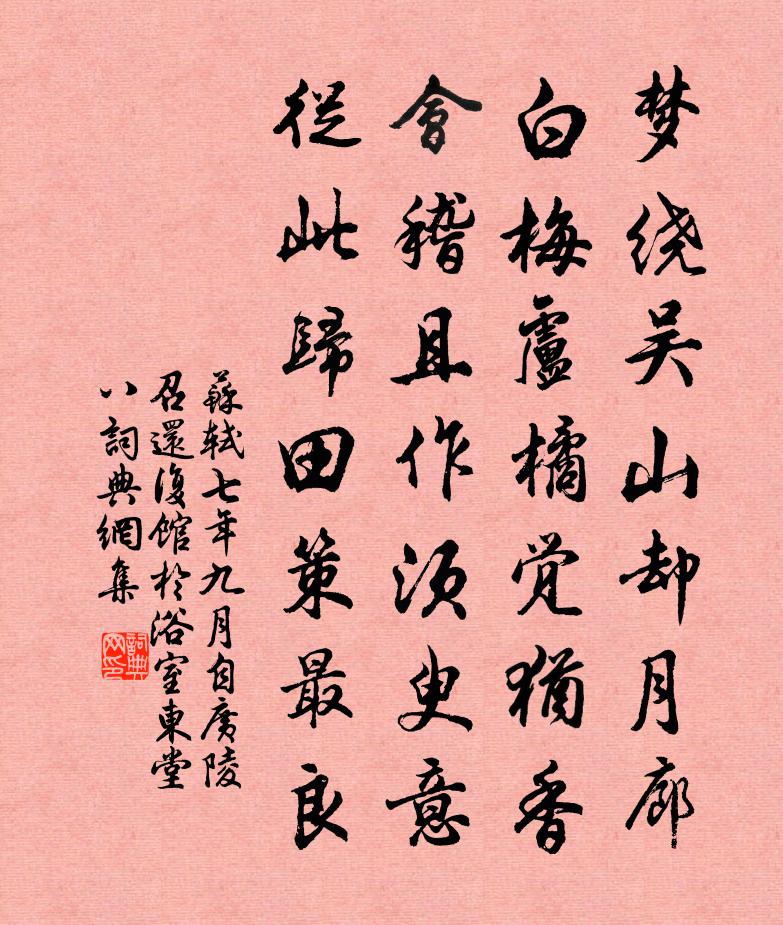 梦绕吴山却月廊
白梅盧橘觉猶香
會稽且作须臾意
從此歸田策最良
蘇軾七年九月自廣陵
召還復館於浴室東堂
八詞典網集
詞典网印